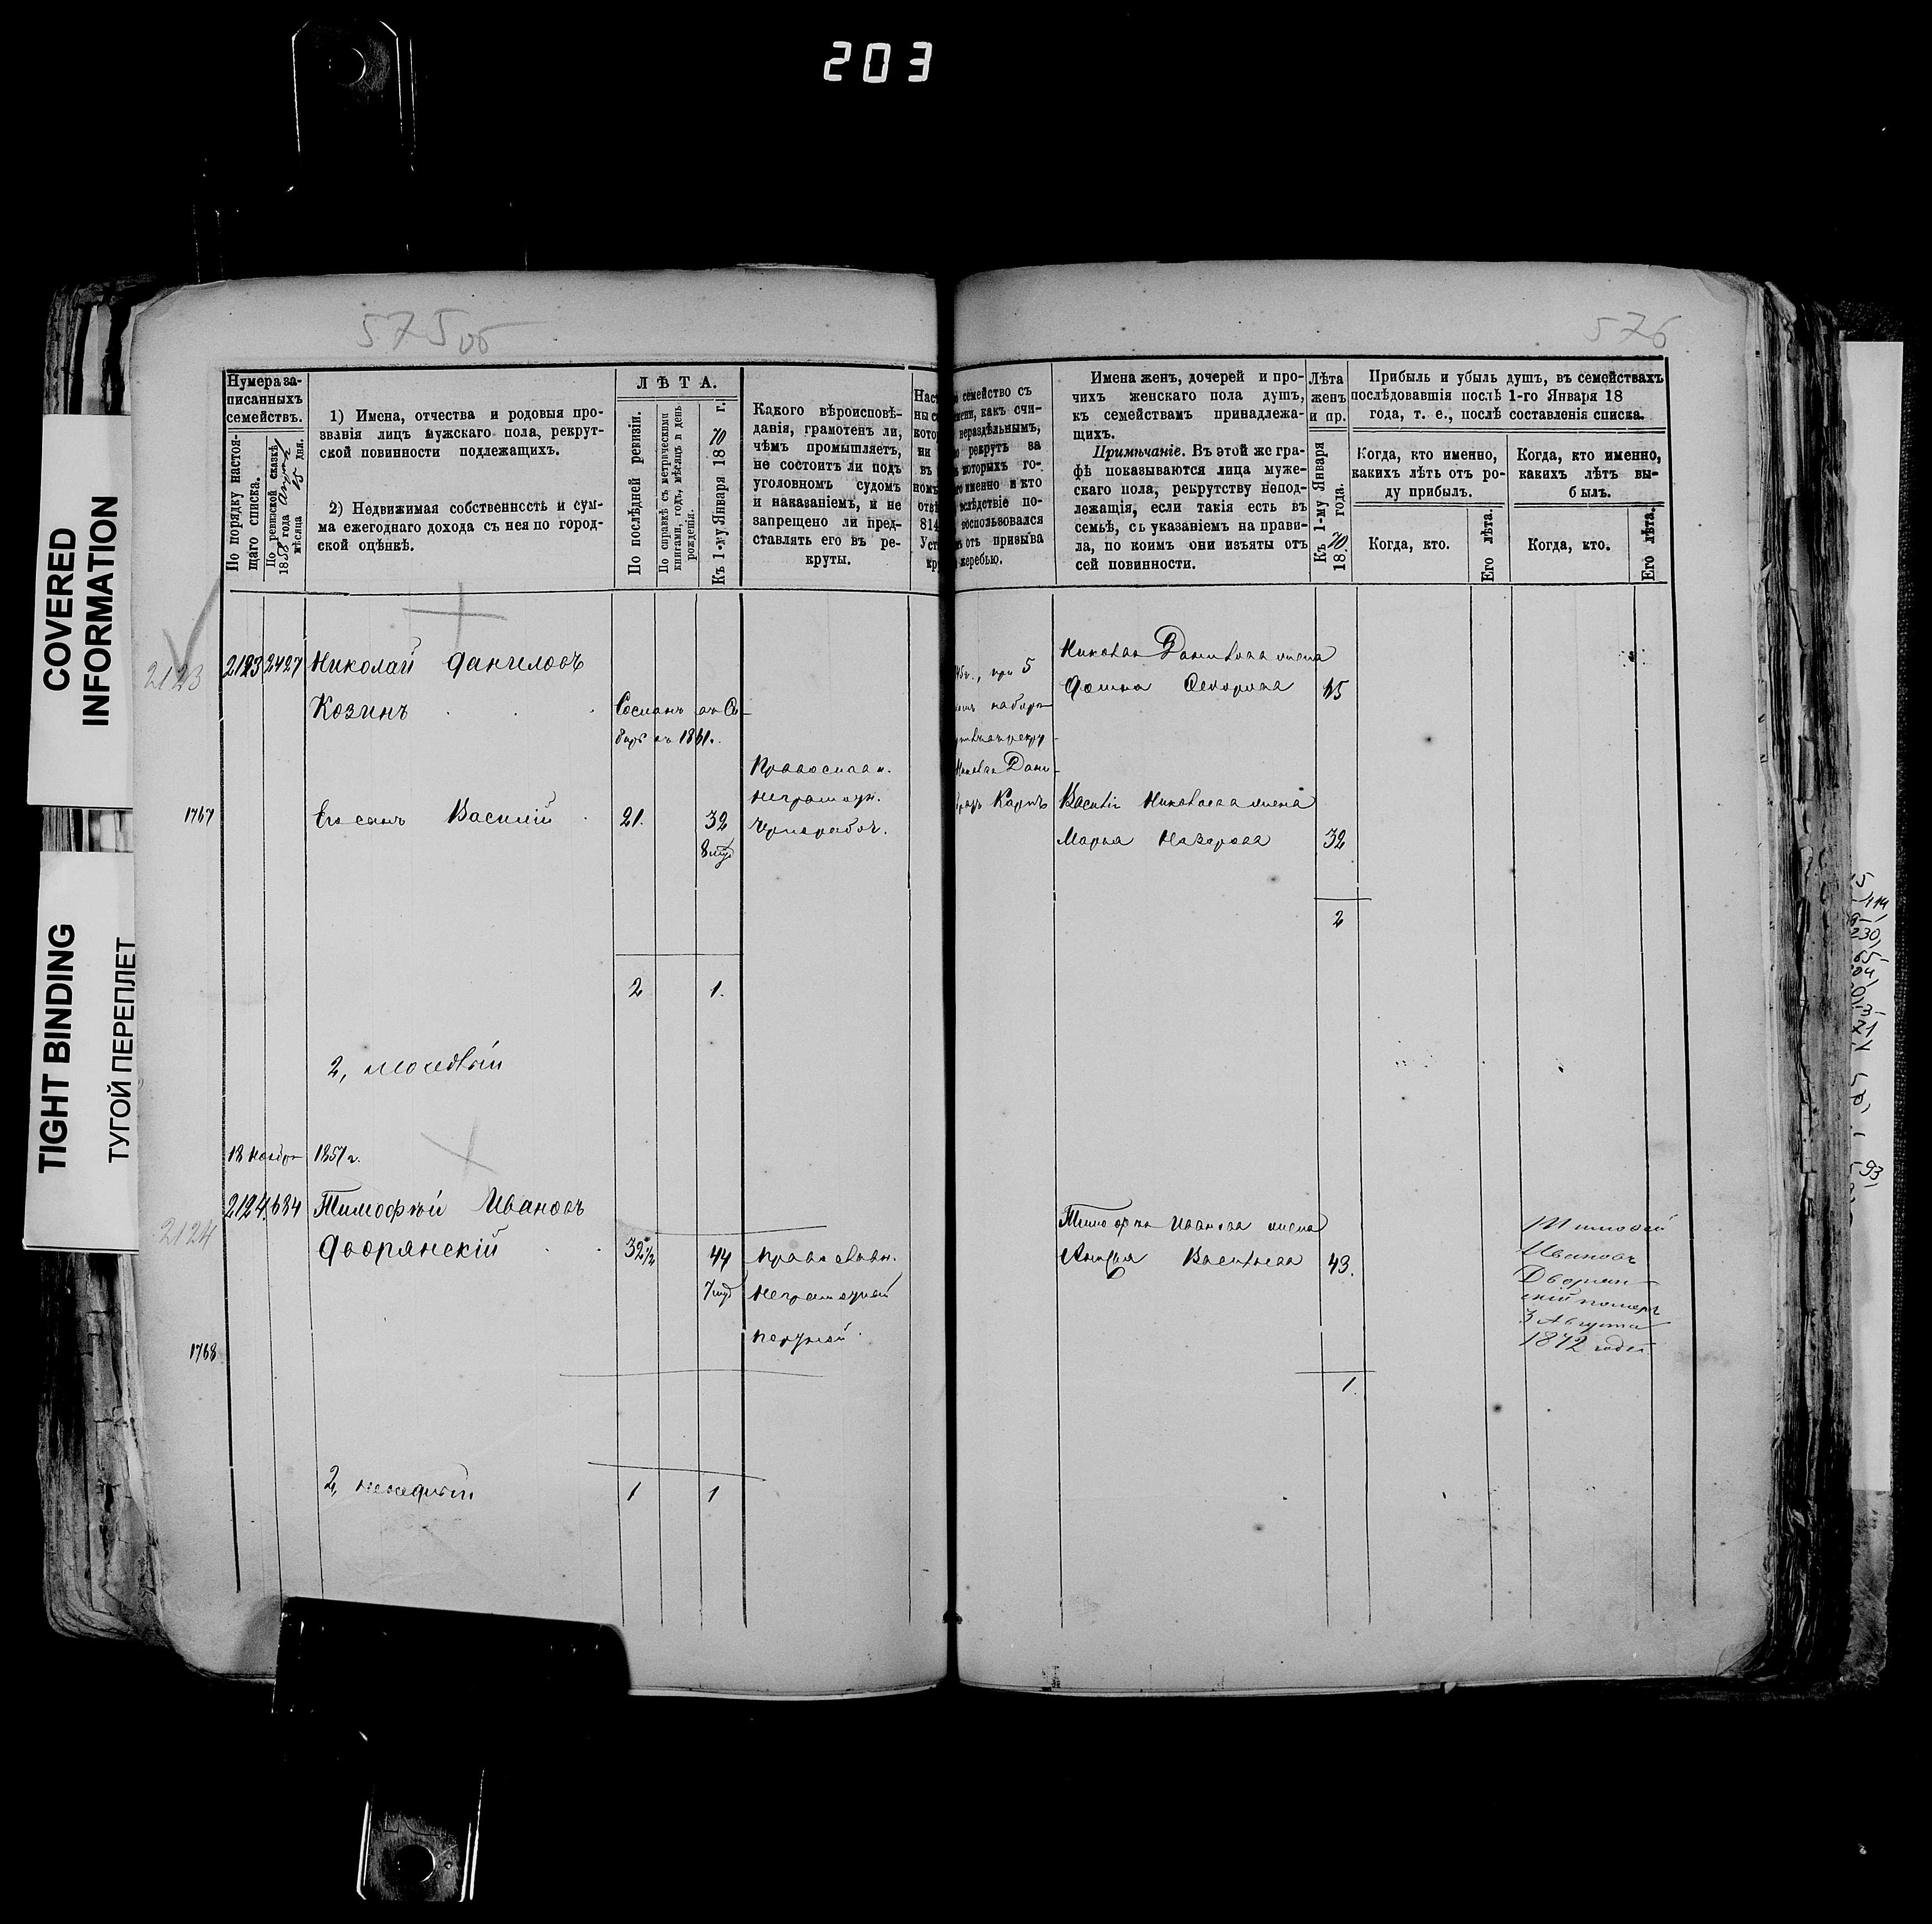 203
COVERED
INFORMATION
TIGHT BINDING
ТУГОЙ ПЕРЕПЛЕТ
575 об
576
Нумера за-
писанныхъ
семействъ.
По порядку настоя-
щаго списка.
По ревизской сказкѣ
1858 года
мѣсяца дня.
1) Имена, отчества и родовыя про-
званія лицъ мужскаго пола, рекрут-
ской повинности подлежащихъ.
2) Недвижимая собственность и сум-
ма ежегоднаго дохода съ нея по город-
ской оцѣнкѣ.
ЛѢТА.
По послѣдней ревизіи.
По справкѣ съ метрическими
книгами, годъ, мѣсяцъ и день
рожденія.
Къ 1-му Января 1870 г.
Какого вѣроисповѣ-
данія, грамотенъ ли,
чѣмъ промышляетъ,
не состоитъ ли подъ
уголовнымъ судомъ
и наказаніемъ, и не
запрещено ли пред-
ставлять его въ ре-
круты.
семейство съ
какъ счи-
нераздѣльнымъ,
рекрутъ за
которыхъ го-
именно и кто
вслѣдствіе по-
воспользовался
отъ призыва
жеребью.
Имена женъ, дочерей и про-
чихъ женскаго пола душъ,
къ семействамъ принадлежа-
щихъ.
Примѣчаніе. Въ этой же гра-
фѣ показываются лица муже-
скаго пола, рекрутству непод-
лежащія, если такія есть въ
семьѣ, съ указаніемъ на прави-
ла, по коимъ они изъяты отъ
сей повинности.
Лѣта
женъ
и пр.
Къ 1-му Января
1870 года.
Прибыль и убыль душъ, въ семействахъ
послѣдовавшія послѣ 1-го Января 18
года, т. е., послѣ составленія списка.
Когда, кто именно,
какихъ лѣтъ отъ ро-
ду прибылъ.
Когда, кто именно,
какихъ лѣтъ вы-
былъ.
Когда, кто.
Его лѣта.
Когда, кто.
Его лѣта.
2123
2123 2427 Николай Даниловъ
Козинъ
Сосланъ въ Си-
бирь въ 1861.
при 5
Николая Данилова жена
1767
Его сынъ Василій 21. 32
Православн.
Неграмотн.
Чернорабоч.
Карпъ
Василія Николаева жена
Марья Назарова 32
2
2 1.
18 Ноября 1857 г.
2124
2124. 634 Тимофѣй Ивановъ
Дворянскій 32½ 44
Православн.
Неграмотный
Тимофея Иванова жена
Васильева 43.
Тимофей
Ивановъ
Дворян-
скій померъ
3 Августа
1872 года
1768
1.
1 1